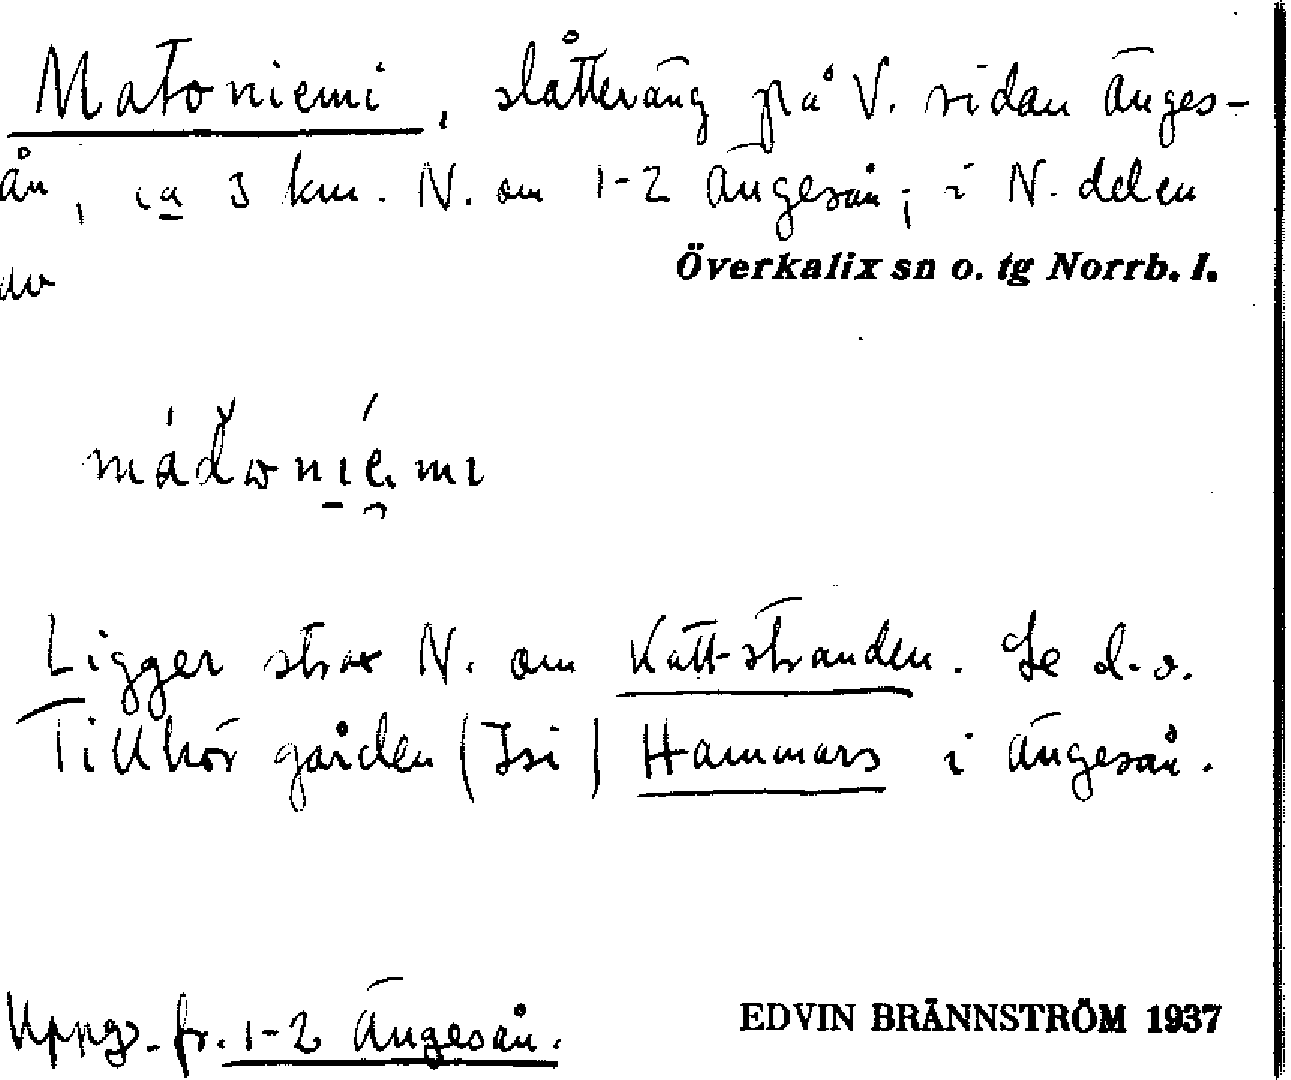 Matoniemi, slåtteräng på V. sidan Änges-
ån, ca 3 km. N. om 1-2 Ängesån; i N. delen
av
Överkalix sn o. tg Norrb. l.
Ligger strax N. om Katt-stranden. Se d. o.
Tillhör gården (Isi) Hammars i Ängesån.
Uppg. fr. 1-2 Ängesån.
EDVIN BRÄNNSTRÖM 1937